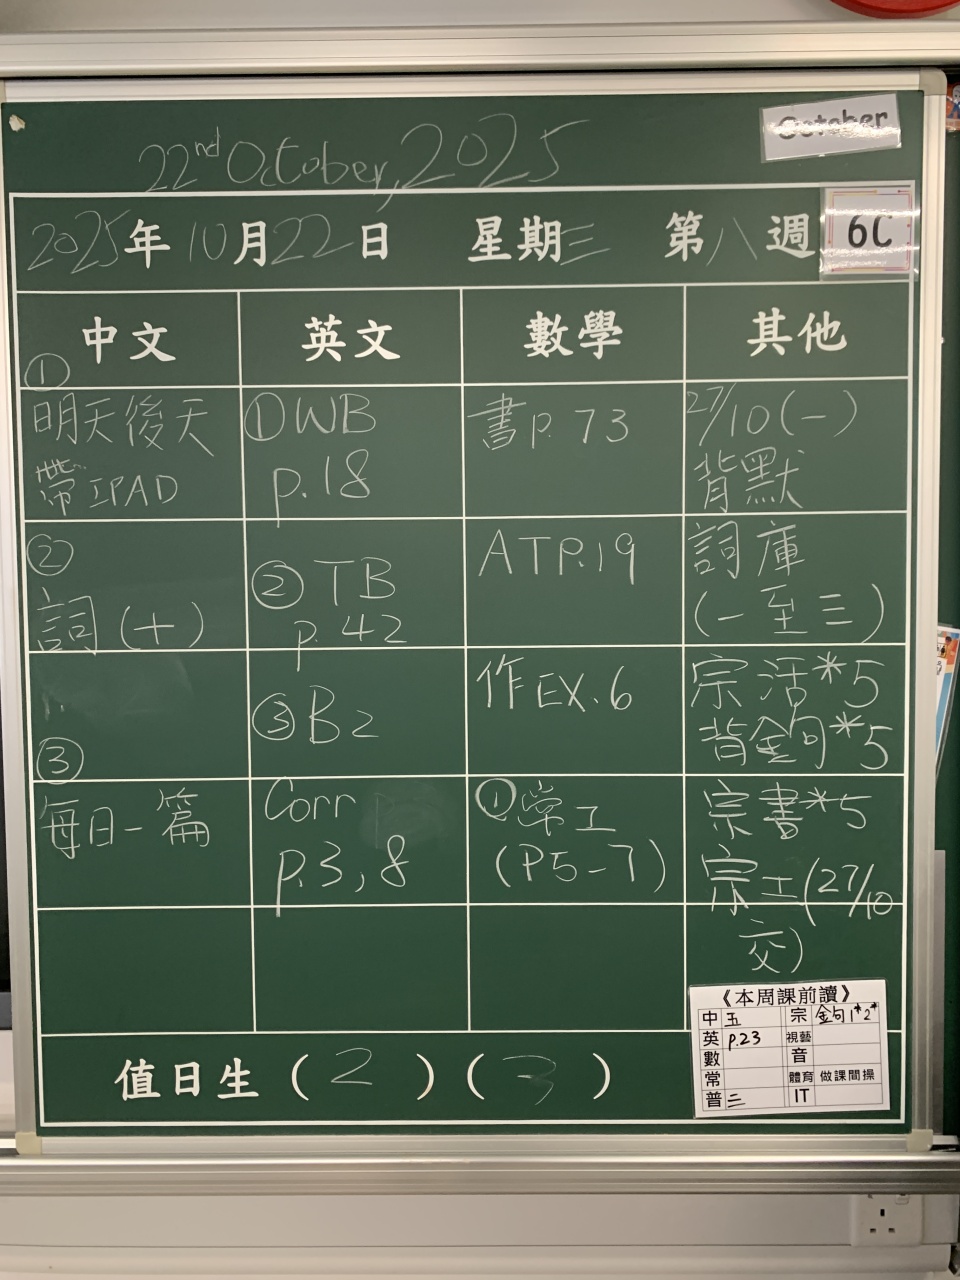 October
22nd October, 2025
2025年10月22日 星期三 第八週 6C
中文 英文 數學 其他
①
明天後天
帶IPAD
②
詞(十)
③
每日一篇
①WB
p.18
②TB
p.42
③B2
Corr
p.3,8
書p.73
ATP.19
作EX.6
①常工
(P5-7)
27/10(一)
背默
詞庫
(一至三)
宗活*5
背金句*5
宗書*5
宗工(27/10
交)
《本周課前讀》
中 五 宗 金句1*2*
英 p.23 視藝
數 音
常 體育 做課間操
普 二 IT
值日生(2)(3)